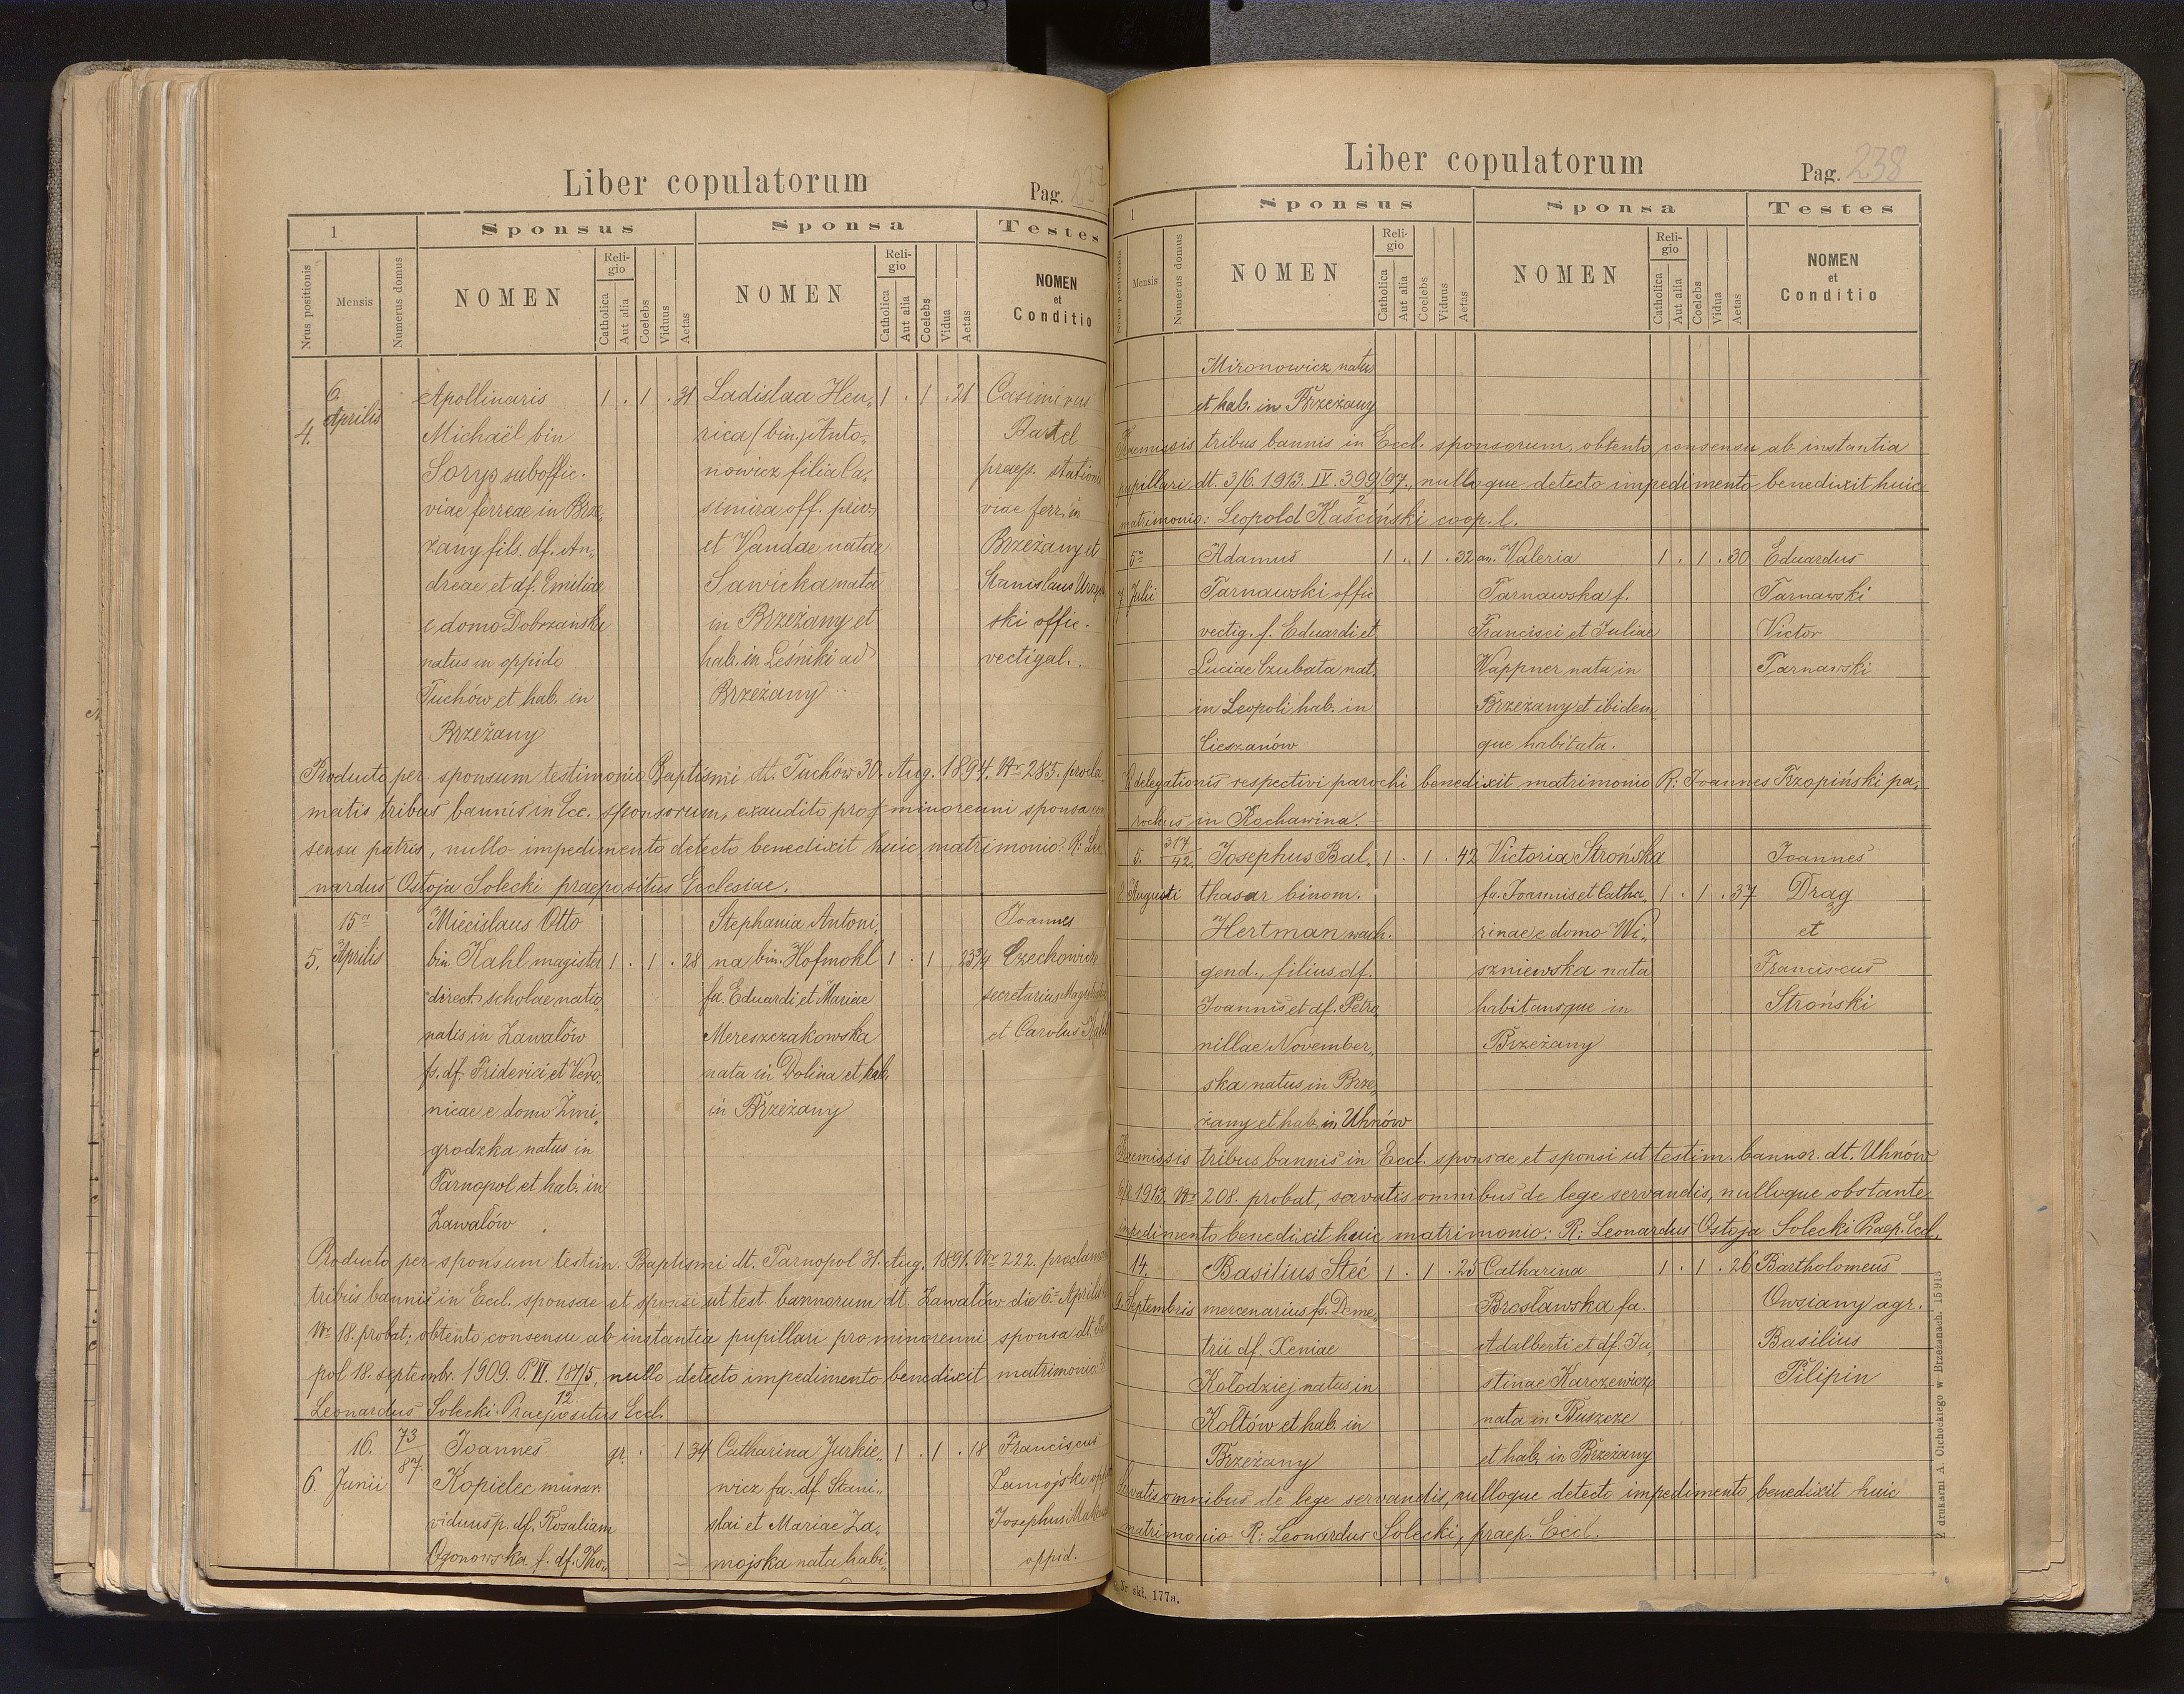 Liber copulatorum
Pag. 237
1
Sponsus
Sponsa
Testes
Nrus positionis
Mensis
Numerus domus
NOMEN
Religio
Catholica
Aut alia
Coelebs
Viduus
Aetas
NOMEN
Religio
Catholica
Aut alia
Coelebs
Vidua
Aetas
NOMEN
et
Conditio
6. Apollinaris 1 . 1 . 31 Ladislaa Hen„ 1 . 1 . 21 Casimirus
4. Aprilis Michaël bin rica (bin.) Anto- Bartel
Sorys suboffic. nowicz filia Ca„ praep. stationis
viae ferreae in Brze„ simira off. priv. viae ferr. in
żany fils. df. An„ et Vandae natae Brzeżany et
dreae et df. Emiliae Sawicka nata Stanislaus
e domo Dobrzańska in Brzeżany et ski offic.
natus in oppido hab. in Leśniki ad vectigal.
Tuchów et hab. in Brzeżany
Brzeżany
Producto per sponsum testimonio Baptismi dt. Tuchów 30. Aug. 1894. Nr 285. procla„
matis tribus bannis in Ecc. sponsorum, exaudito pro minorenni sponsa con
sensu patris, nullo impedimento detecto benedixit huic matrimonio: R: Leo
nardus Ostoja Solecki praepositus Ecclesiae.
15a Miecislaus Otto Stephania Antoni„ Joannes
5. Aprilis bin. Kahl magister 1 . 1 . 28 na bin. Hofmokl 1 . 1 23¾ Czechowicz
direct. scholae natio„ fa. Eduardi et Mariae secretarius Magistratus
natis in Zawałów Mereszczakowska et Carolus Kahl
fs. df. Friderici et Vero„ nata in Dolina et hab.
nicae e domo Żmi„ in Brzeżany
grodzka natus in
Tarnopol et hab. in
Zawałów
Producto per sponsum testim. Baptismi dt. Tarnopol 31. Aug. 1891. Nr 222. proclamatis
tribus bannis in Eccl. sponsae et sponsi ut test. bannorum dt. Zawałów die 6. Aprilis
Nr 18. probat; obtento consensu ab instantia pupillari pro minorenni sponsa dt.
pol 18. septembr. 1909. P. VI. 187/5, nullo detecto impedimento benedixit matrimonio
12
Leonardus Solecki Praepositus Eccl.
16. 73 Joannes gr. . 1 34 Catharina Jurkie„ 1 . 1 . 18 Franciscus
87.
6. Junii Kopielec murar. wicz fa. df. Stani„ Zamojski
viduus p. df. Rosaliam slai et Mariae Za„ Josephus
Ogonowska f. df. Tho„ mojska nata habi„ oppid.
Liber copulatorum
Pag. 238
1
Sponsus
Sponsa
Testes
Nrus positionis
Mensis
Numerus domus
NOMEN
Religio
Catholica
Aut alia
Coelebs
Viduus
Aetas
NOMEN
Religio
Catholica
Aut alia
Coelebs
Vidua
Aetas
NOMEN
et
Conditio
Mironowicz natus
et hab. in Brzeżany
Praemissis tribus bannis in Eccl. sponsorum, obtento consensu ab instantia
pupillari dt. 3/6. 1913. IV. 399/97., nulloque detecto impedimento benedixit huic
2
matrimonio: Leopold Kaściński coop. l.
5a Adamus 1 . 1 . 32 an. Valeria 1 . 1 . 30 Eduardus
7. Julii Tarnawski offic Tarnawska f. Tarnawski
vectig. f. Eduardi et Francisci et Juliae Victor
Luciae Czubata nat. Wappner nata in Tarnawski
in Leopoli hab. in Brzeżany et ibidem„
Cieszanów que habitata.
delegationis respectivi parochi benedixit matrimonio R: Joannes Trzopiński pa„
rochus in Kochawina.
5. 317 Josephus Bal„ 1 . 1 . 42 Victoria Strońska Joannes
42.
8. Augusti thasar binom. fa. Joannis et Catha„ 1 . 1 . 37 Drag
Hertman wach. rinae e domo Wi„ et
gend., filius df. szniewska nata Franciscus
Joannis et df. Petro habitansque in Stroński
nillae November„ Brzeżany
ska natus in Brze„
żany et hab. in Uhnów
Praemissis tribus bannis in Eccl. sponsae et sponsi ut testim. bannor. dt. Uhnów
1913. Nr 208. probat, servatis omnibus de lege servandis, nulloque obstante
impedimento benedixit huic matrimonio: R: Leonardus Ostoja Solecki Praep. Eccl.
14. Basilius Steć 1 . 1 . 25 Catharina 1 . 1 . 26 Bartholomeus
9. Septembris mercenarius fs. Deme„ Brosławska fa. Owsiany agr.
trii df. Xeniae Adalberti et df. Ju„ Basilius
Kołodziej natus in stinae Karczewicz Pilipin
Kołtów et hab. in nata in Buszcze
Brzeżany et hab. in Brzeżany
Servatis omnibus de lege servandis, nulloque detecto impedimento benedixit huic
matrimonio R: Leonardus Solecki, praep. Eccl.
Nr skł. 177a.
Z drukarni A. Olchockiego w Brzeżanach. 15913